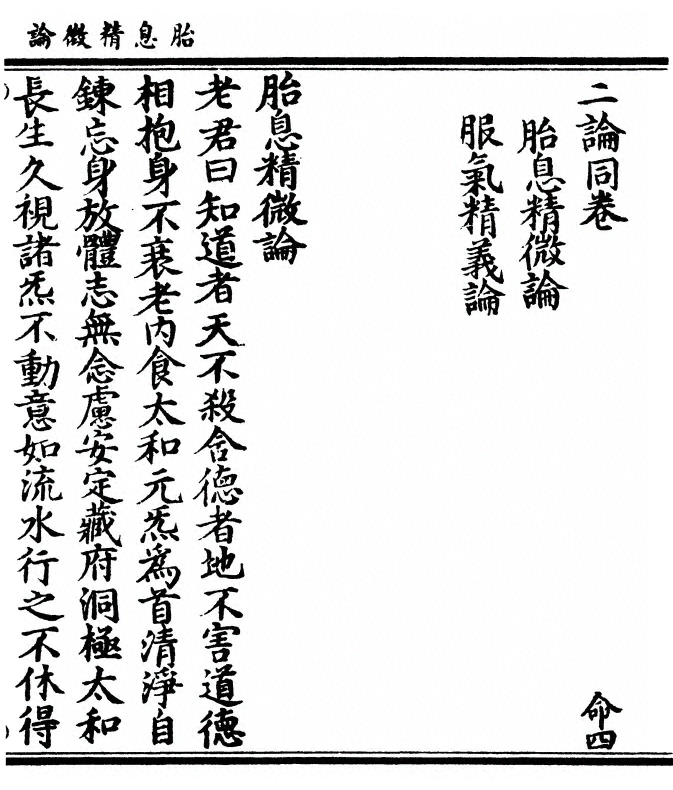 胎息精微論
二論同卷
命四
胎息精微論
服氣精義論
胎息精微論
老君曰知道者天不殺含德者地不害道德
相抱身不衰老内食太和元炁爲首清淨自
鍊忘身放體志無念慮安定藏府洞極太和
長生久視諸炁不動意如流水行之不休得